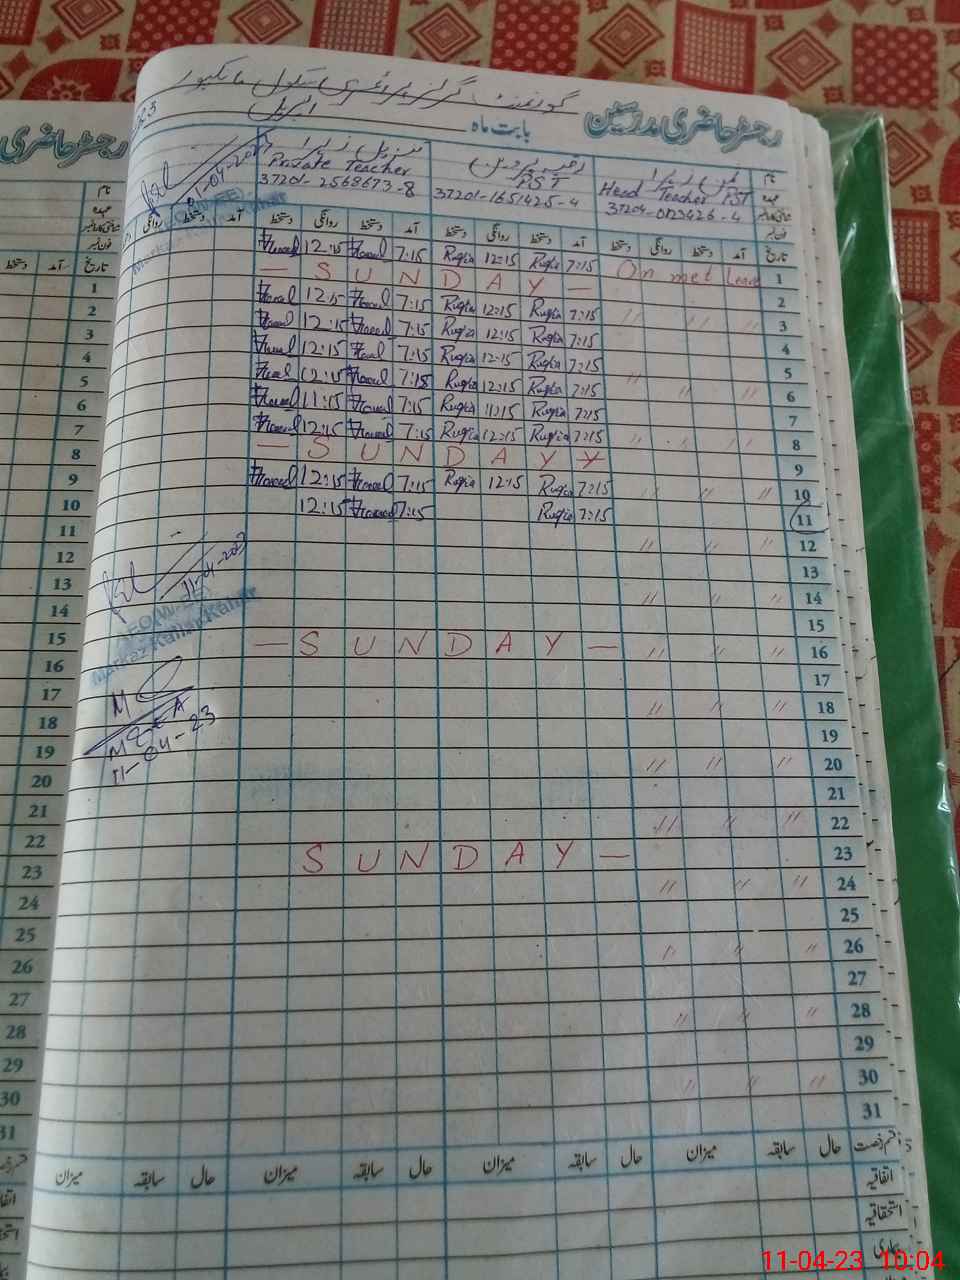 گورنمنٹ گرلز پرائمری سکول مانکپور
رجسٹر حاضری مدرسین
بابت ماہ اپریل
رجسٹر حاضری
نام
عہدہ
شناختی کارڈ نمبر
فون نمبر
Head Teacher PST
37204-0123426-4
رقیہ پروین
PST
37201-1651425-4
Private Teacher
37201-2568673-8
تاریخ آمد دستخط روانگی دستخط آمد دستخط روانگی دستخط آمد دستخط روانگی دستخط آمد دستخط روانگی
1 On met Leave 7:15 Ruqia 12:15 Ruqia 7:15 12:15
2 — S U N D A Y —
3 " " " 7:15 Ruqia 12:15 Ruqia 7:15 12:15
4 7:15 Ruqia 12:15 Ruqia 7:15 12:15
5 " 7:15 Ruqia 12:15 Ruqia 7:15 12:15
6 " " 7:15 Ruqia 12:15 Ruqia 7:15 12:15
7 7:15 Ruqia 11:15 Ruqia 7:15 11:15
8 " " " 7:15 Ruqia 12:15 Ruqia 7:15 12:15
9 — S U N D A Y —
10 " " " 7:15 Ruqia 12:15 Ruqia 7:15 12:15
11 7:15 Ruqia 7:15 12:15
12 " " "
13
14 " " "
15
16 " " " — S U N D A Y —
17
18 " " "
19
20 " " "
21
22 " " "
23 S U N D A Y —
24 " " "
25
26 " " "
27
28 " " "
29
30 " " "
31
حال سابقہ میزان حال سابقہ میزان حال سابقہ میزان حال سابقہ میزان
اتفاقیہ
استحقاقیہ
بیماری
11-04-2023
AEO(W-EE)
Markaz Kallar Kahar
11-04-2023
AEO(W-EE)
Markaz Kallar Kahar
MEA
11-04-23
تاریخ آمد دستخط
1
2
3
4
5
6
7
8
9
10
11
12
13
14
15
16
17
18
19
20
21
22
23
24
25
26
27
28
29
30
31
11-04-23 10:04